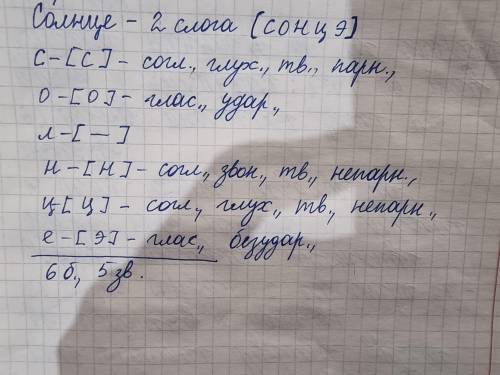 Со́лнце - 2 слога [СОНЦЭ]
С-[С]- согл., глух., тв., парн.,
О-[О]-глас., удар.,
Л-[—]
Н-[Н]-согл., звон., тв., непарн.,
Ц[Ц]- согл., глух., тв., непарн.,
е-[Э]-глас., безудар.,
6б., 5зв.